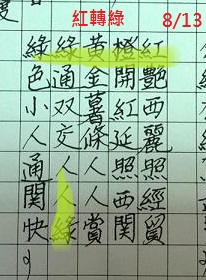 紅轉綠 8/13
紅艷西麗照經貿
橙開紅延照西關
黃金薯條人人賞
綠通双交人人綠
綠色小人通關快